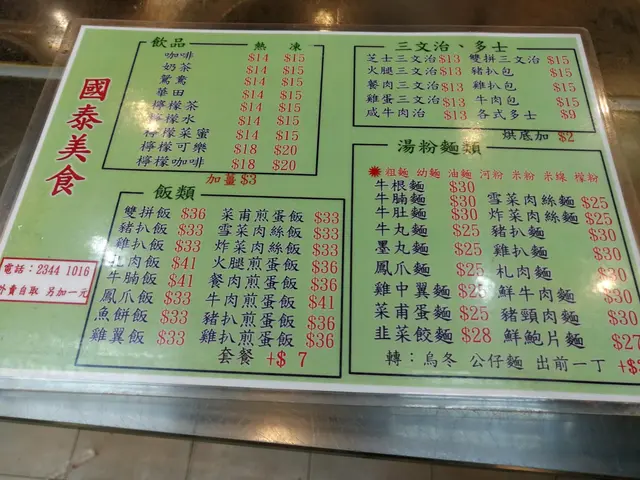 國泰美食
電話：2344 1016
外賣自取 另加一元
飲品 熱 凍
咖啡 $14 $15
奶茶 $14 $15
鴛鴦 $14 $15
華田 $14 $15
檸檬茶 $14 $15
檸檬水 $14 $15
檸檬菜蜜 $14 $15
檸檬可樂 $18 $20
檸檬咖啡 $18 $20
加薑 $3
飯類
雙拼飯 $36 菜甫煎蛋飯 $33
豬扒飯 $33 雪菜肉絲飯 $33
雞扒飯 $33 炸菜肉絲飯 $33
札肉飯 $41 火腿煎蛋飯 $36
牛腩飯 $41 餐肉煎蛋飯 $36
鳳爪飯 $33 牛肉煎蛋飯 $41
魚餅飯 $33 豬扒煎蛋飯 $36
雞翼飯 $33 雞扒煎蛋飯 $36
套餐 +$ 7
三文治、多士
芝士三文治 $13 雙拼三文治 $15
火腿三文治 $13 豬扒包 $15
餐肉三文治 $13 雞扒包 $15
雞蛋三文治 $13 牛肉包 $15
咸牛肉治 $13 各式多士 $9
烘底加 $2
湯粉麵類
粗麵 幼麵 油麵 河粉 米粉 米線 檬粉
牛根麵 $30
牛腩麵 $30 雪菜肉絲麵 $25
牛肚麵 $30 炸菜肉絲麵 $25
牛丸麵 $25 豬扒麵 $30
墨丸麵 $25 雞扒麵 $30
鳳爪麵 $25 札肉麵 $30
雞中翼麵 $25 鮮牛肉麵 $30
菜甫蛋麵 $25 豬頸肉麵 $30
韭菜餃麵 $28 鮮鮑片麵 $27
轉：烏冬 公仔麵 出前一丁 +$